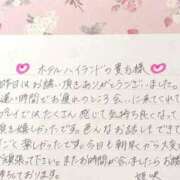 ホテルハイランドの貴方様
昨日はお誘い頂きありがとうございました。
遅い時間でお疲れのところ会いに来てくれて
プレイではたくさん感じて気持ち良くなって
も嬉しかったです。色んなお話しもできて
ごく楽しかったです。今日も朝早くからお仕事
頑張って下さい。またお時間が合いましたらお誘
待ちております。